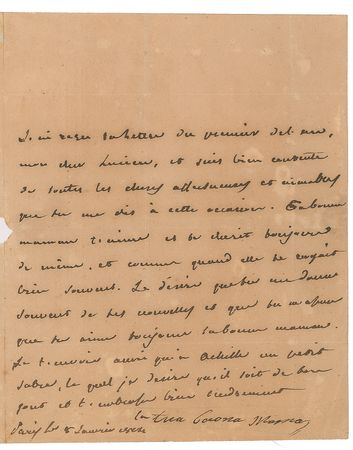 J'ai reçu ta lettre du premier de l'an,
mon cher Lucien, et suis bien contente
de toutes les choses affectueuses et aimables
que tu me dis à cette occasion. Ta bonne
maman t'aime et te chérit toujours
de même, et comme quand elle te voyait
bien souvent. Le désire que tu me donne
souvent de tes nouvelles et que tu m'assure
que tu aime toujours ta bonne maman.
Je t'envoie ainsi qu'à Achille un petit
sabre, le quel je désire qu'il soit de bon
gout et t'embrasse bien tendrement
Paris le 8 Janvier